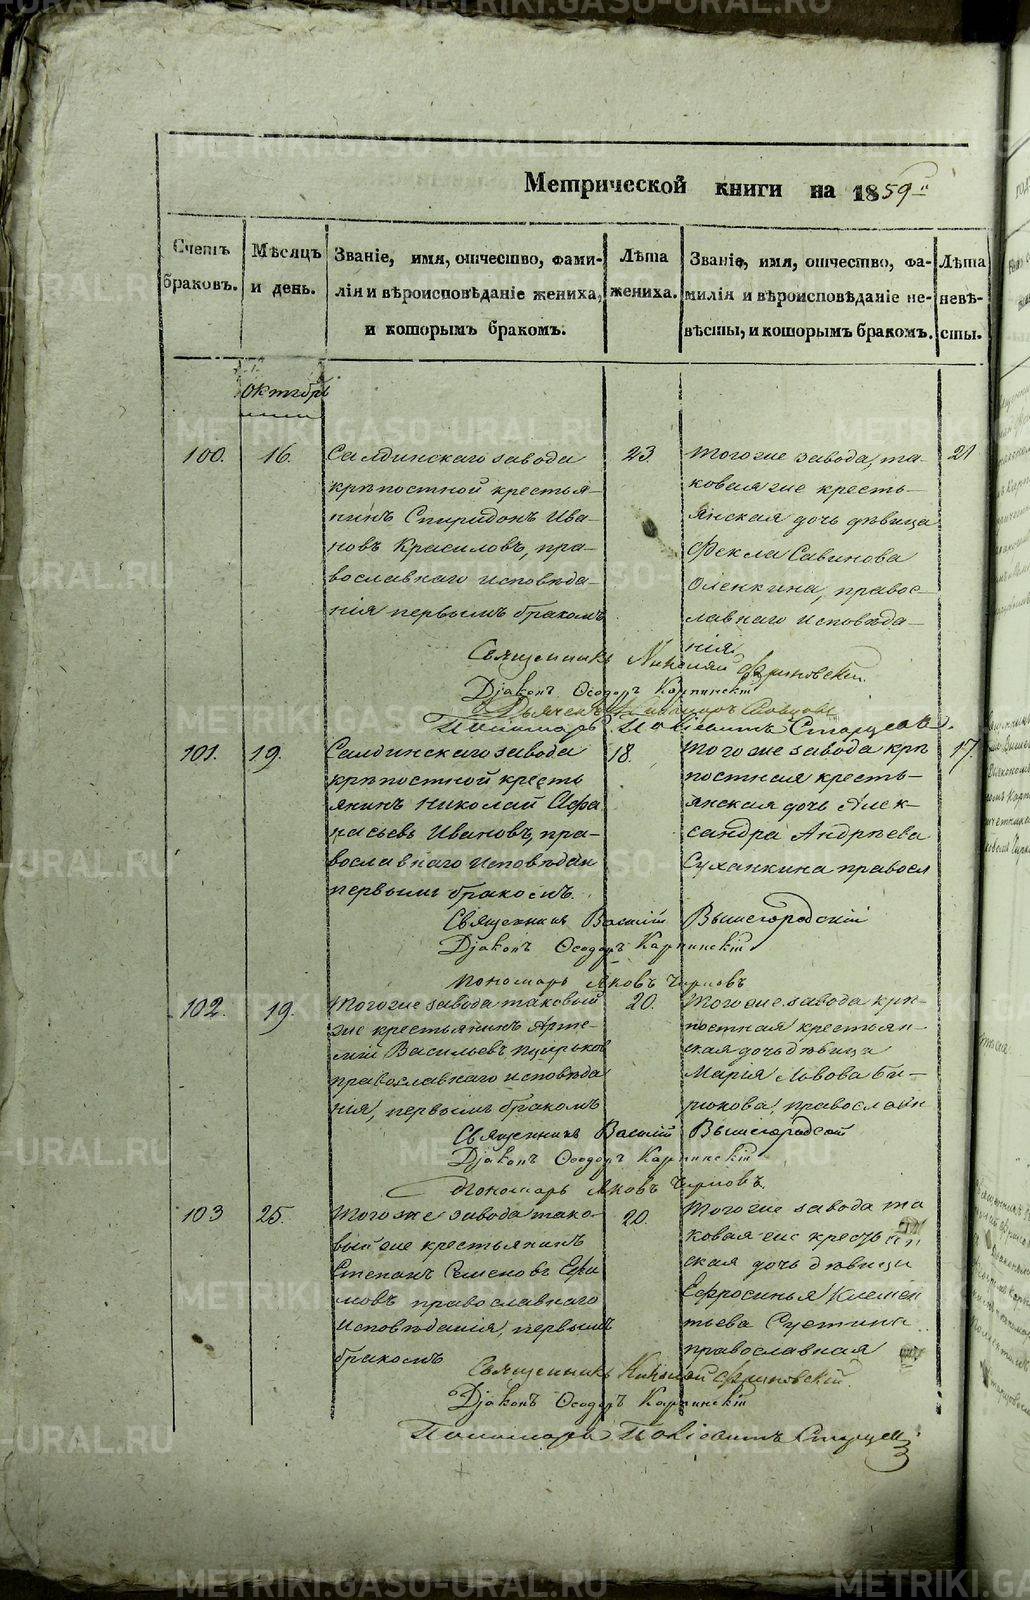 Метрической книги на 1859й
Счетъ браковъ.
Мѣсяцъ и день.
Званіе, имя, отчество, фами-
лія и вѣроисповѣданіе жениха,
и которымъ бракомъ.
Лѣта жениха.
Званіе, имя, отчество, фа-
милія и вѣроисповѣданіе не-
вѣсты, и которымъ бракомъ.
Лѣта невѣ-
сты.
Октябрь
100.
16.
Салдинскаго завода
крѣпостной крестья-
нинъ Спиридонъ Ива-
новъ Красиловъ, пра-
вославнаго исповѣда-
нія первымъ бракомъ
23.
Тогоже завода, та-
коваяже кресть-
янская дочь дѣвица
Фекла Савинова
Оленкина, правос-
лавнаго исповѣда-
нія
21
Священникъ Николай
Дjаконъ Ѳеодоръ Карпинскій
Пономарь Старцевъ.
101.
19.
Салдинскаго завода
крѣпостной кресть
янинъ Николай Афа
насьевъ Ивановъ, пра-
вославнаго исповѣдан
первымъ бракомъ.
18.
Тогоже завода крѣ
постная кресть-
янская дочь Алек-
сандра Андрѣева
Суханкина правосл
17.
Священникъ Василій Вышегородскій
Дjаконъ Ѳеодоръ Карпинскій
Пономарь Яковъ Черновъ
102.
19.
Тогоже завода таковый
же крестьянинъ Арте-
мій Васильевъ
православнаго исповѣда
нія, первымъ бракомъ
20.
Тогоже завода крѣ-
постная крестьян-
ская дочь дѣвица
Марія Львова Би-
рюкова, православн
Священникъ Василій Вышегородскій
Дjаконъ Ѳеодоръ Карпинскій
Пономарь Яковъ Черновъ.
103
25.
Тогоже завода тако-
вый же крестьянинъ
Степанъ Семеновъ Ефи
мовъ православнаго
исповѣданія, первымъ
бракомъ
20.
Тогоже завода та
коваяже крестьян
ская дочь дѣвица
Ефросинья Клемен
тьева
православная
Священникъ Николай
Дjаконъ Ѳеодоръ Карпинскій
Пономарь
METRIKI.GASO-URAL.RU